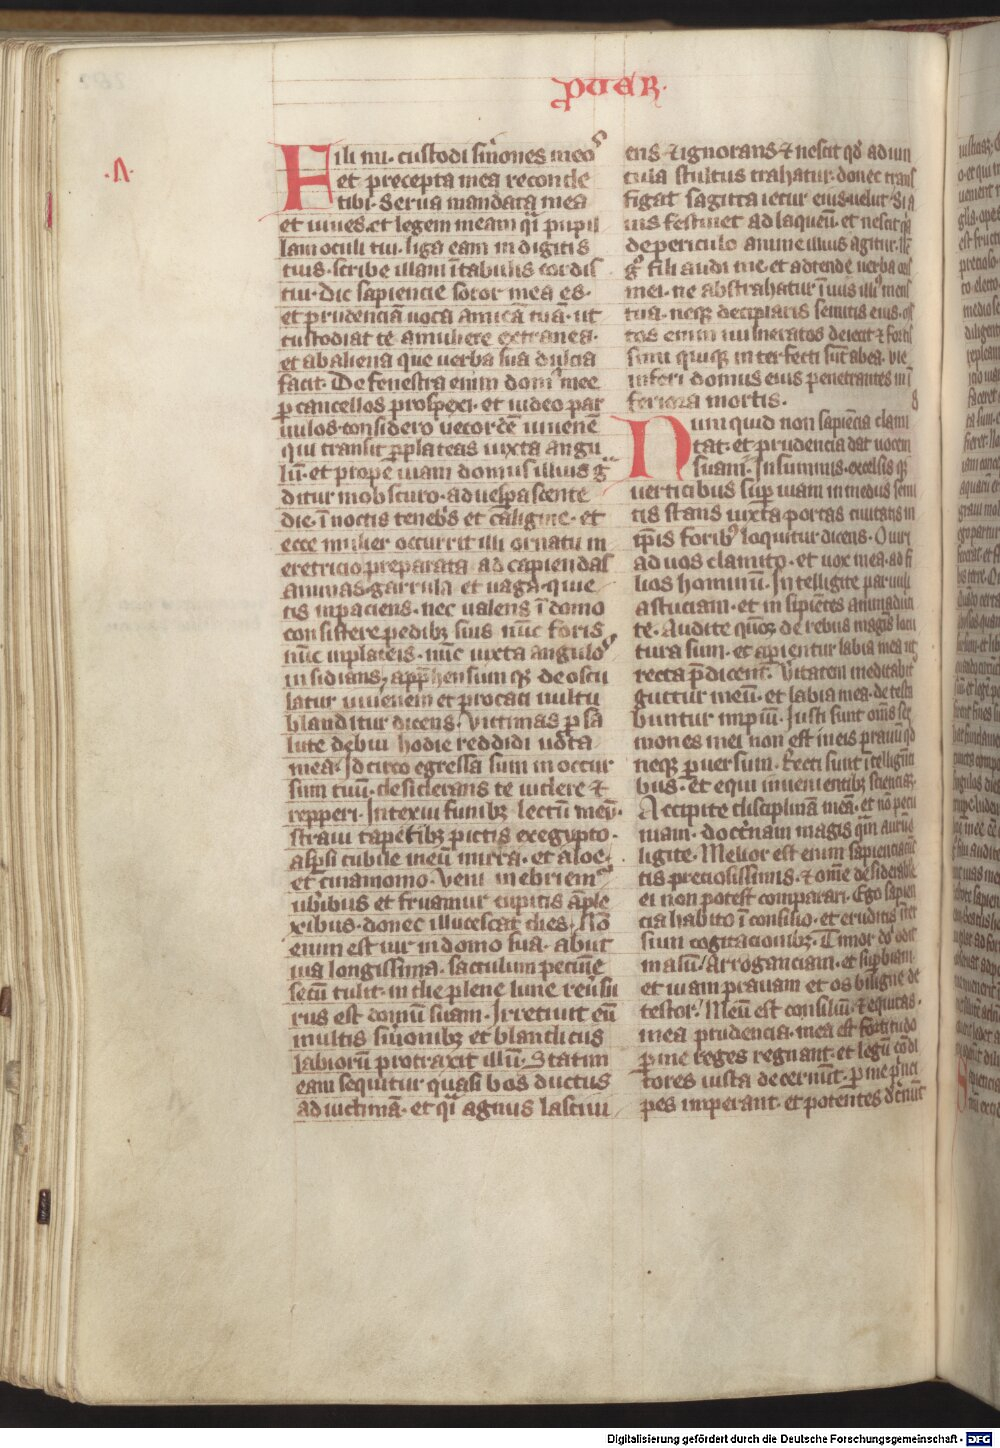 PUER.
.Λ.
Fili mi. custodi s̄mones meoꝰ
et precepta mea reconde
tibi. Serua mandata mea
et uiues. et legem meam qͥ pupil
lam oculi tui. liga eam in digitis
tuis. scribe illam ī tabulis cordis
tui. Dic sapiencie soror mea es.
et prudenciā uoca amicā tuā. ut
custodiat te a muliere extranea.
et ab aliena que uerba sua dulcia
facit. De fenestra enim domꝰ mee
ꝑ cancellos prospexi. et uideo par
uulos. considero uecordē iuuenē
qui transit ꝑ plateas iuxta angu
lū. et prope uiam domus illius gͣ
ditur in obscuro. aduesꝑascente
die. ī noctis teneb̾s et caligine. et
ecce mulier occurrit illi ornatu m
eretricio preparata ad capiendas
animas. garrula et uaga. quie
tis inpaciens. nec ualens ī domo
consistere pedibꝫ suis nūc foris
nūc in plateis. nūc iuxta anguloꝰ
insidians. app̄hensumqꝫ deoscu
latur iuuenem et procaci uultu
blanditur dicens. Victimas ꝑ sa
lute debui hodie reddidi uota
mea. Idcirco egressa sum in occur
sum tuū. desiderans te uidere ⁊
repperi. Intexui funibꝫ lectū meū.
straui tapetibꝫ pictis ex egypto.
asꝑsi cubile meū mirra. et aloe.
et cinamomo. Veni inebriemꝰ
ub̾ibus et fruamur cupitis āple
xibus. donec illucescat dies. Nō
enim est uir in domo sua. abiit
uia longissima. sacculum pecunie
secū tulit. in die plene lune reu̾su
rus est domū suam. Irretiuit eū
multis s̾monibꝫ et blandiciis
labiorū protraxit illū. Statim
eam sequitur quasi bos ductus
ad uictimā. et qͥ agnus lasciui
ens ⁊ ignorans ⁊ nescit qđ ad uin
cula stultus trahatur. donec trans
figat sagitta iecur eius. uelut si a
uis festinet ad laqueū. et nescit qͣ
de periculo anime illius agitur. Nc̄
gͦ fili audi me. et adtende uerba oris
mei. ne abstrahatur ī uiis illiꝰ mens
tua. neqꝫ decipiaris semitis eius. ml̾
tos enim uulneratos deiecit ⁊ fortis
simi quiqꝫ interfecti sūt ab ea. vie
inferi domus eius penetrantes in ī
feriora mortis.
8
Numquid non sapiencia clami
tat. et prudencia dat uocem
suam. In summis. excelsisqꝫ
uerticibus sup̱ uiam in mediis semi
tis stans iuxta portas ciuitatis in
ip̄is foribꝫ loquitur dicens. O uiri
ad uos clamito. et uox mea. ad fi
lios hominū. Intelligite paruuli
astuciam. et insipiētes animaduer
te. Audite quō de rebus magis locu
tura sum. et aperientur labia mea ut
recta p̄dicent. Veritatem meditabit᷑
guttur meū. et labia mea. detesta
buntur impiū. Justi sunt om̄s ser
mones mei non est in eis prauū qđ
neqꝫ ꝑuersum. Recti sunt ītelligēti
bus. et equi inuenientibꝫ scienciaꝫ.
Accipite disciplinā meā. et nō pecu
niam. doctͥnam magis qͣm aurū e
ligite. Melior est enim sapiencia cūc
tis preciosissimis. ⁊ om̄e desiderabile
ei non potest comparari. Ego sapien
cia habito ī consilio. et eruditis īter
sum cogitacionibꝫ. Timor dn̄i odit
malū. Arroganciam. et sup̱biam.
et uiam prauam et os bilīgue de
testor. Meū est consiliū. ⁊ equitas.
mea prudencia. mea est fortitudo
ꝑ me reges regnant. et legū cōdi
tores iusta decernūt. ꝑ me pͥnci
pes imperant. et potentes d̾cernūt
Digitalisierung gefördert durch die Deutsche Forschungsgemeinschaft - DFG